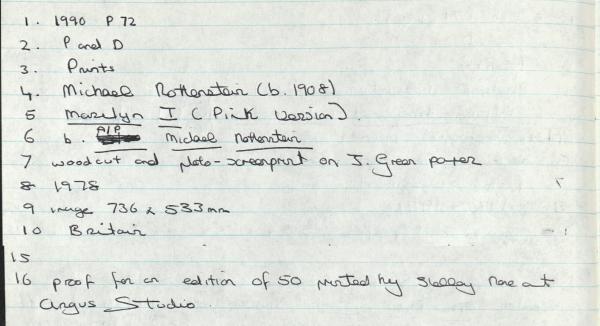 1. 1990 P 72
2. P and D
3. Prints
4. Michael Rothenstein (b. 1908)
5 Marilyn I (Pink Version).
6 b. A/P Michael Rothenstein
7 woodcut and photo-screenprint on J. Green paper
8 1978
9 image 736 x 533 mm
10 Britain
15
16 proof for an edition of 50 printed by Shelley Rose at
Argus Studio.